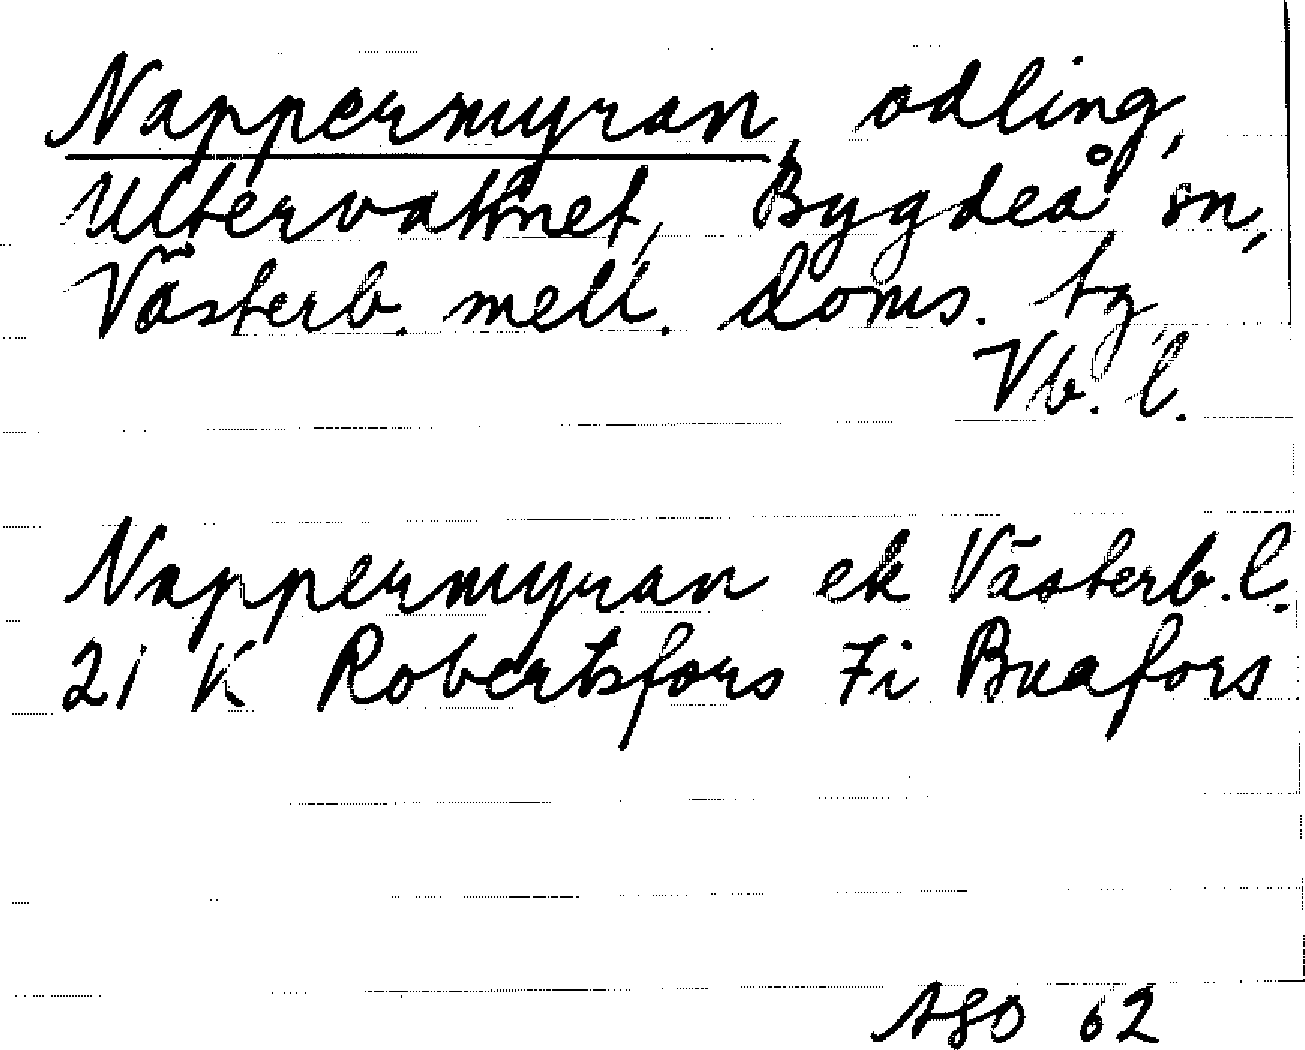 Nappermyran, odling,
Ultervattnet, Bygdeå sn,
Västerb. mell. doms. tg,
Vb. l.
Nappermyran ek Västerb. l.
21 K Robertsfors 7i Buafors
ASO 62